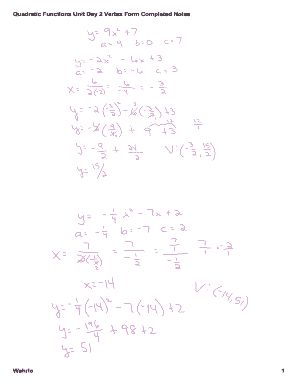 Quadratic Functions Unit Day 2 Vertex Form Completed Notes
y = 9x² + 7
a = 4 b = 0 c = 7
y = -2x² - 6x + 3
a = -2 b = -6 c = 3
x = 6/2(-2) = 6/-4 = -3/2
y = -2(-3/2)² - 6(-3/2) + 3
y = -2(9/4) + 9 + 3 12/1
y = -9/2 + 24/2 V: (-3/2, 15/2)
y = 15/2
y = -1/4 x² - 7x + 2
a = -1/4 b = -7 c = 2
x = 7/2(-1/4) = 7/-1/2 = 7/1/-1/2 7/1 · -2/1
x = -14
V: (-14, 51)
y = -1/4(-14)² - 7(-14) + 2
y = -196/4 + 98 + 2
y = 51
Wahrto 1